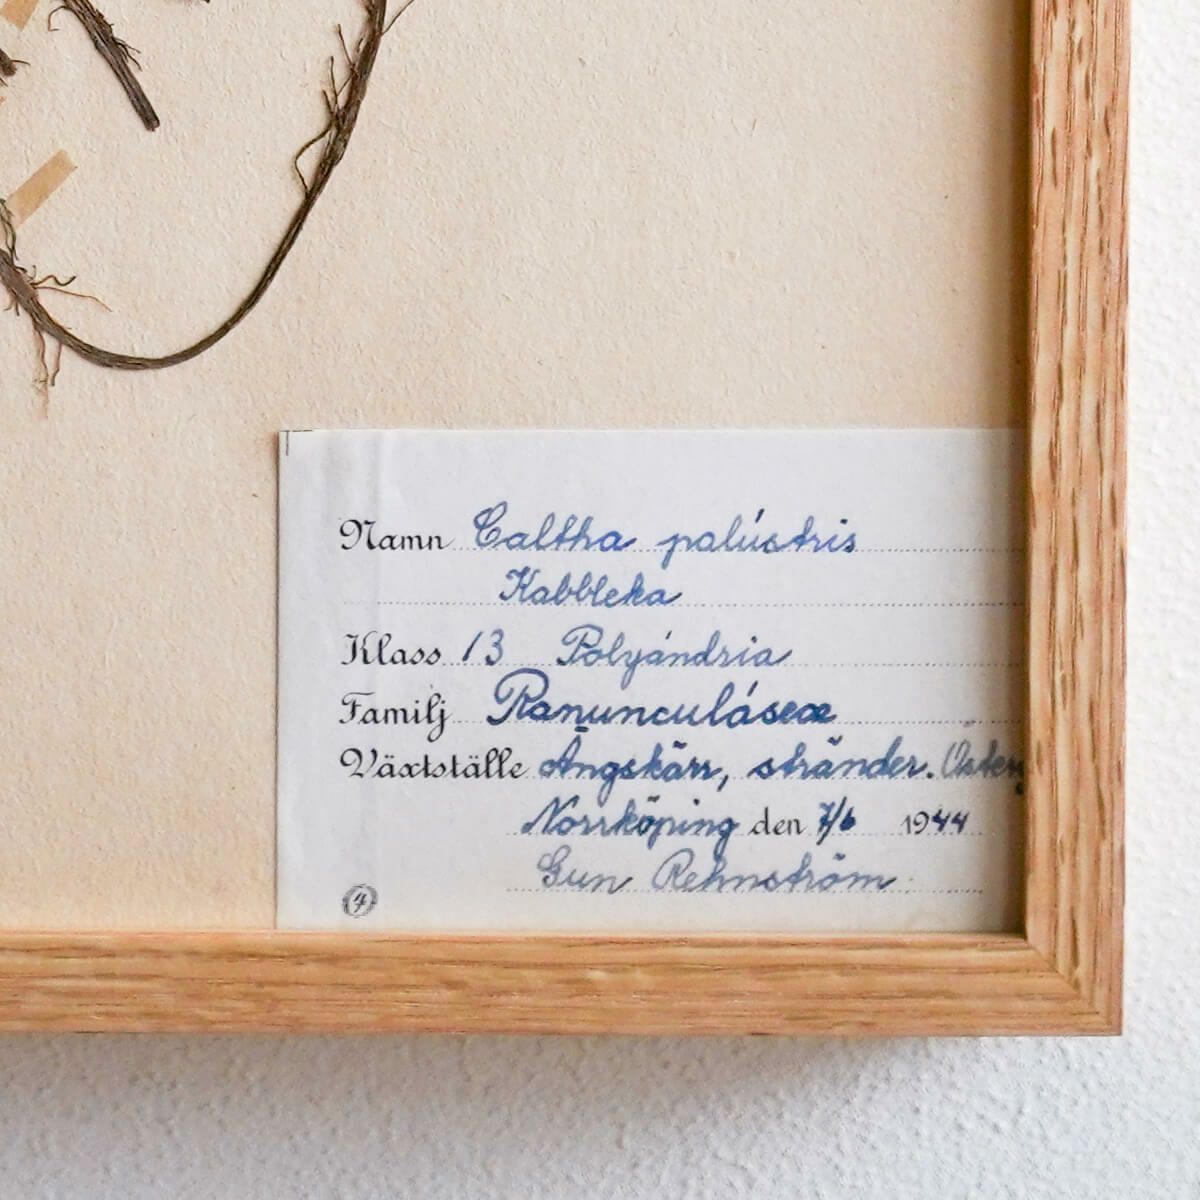 Namn Caltha palústris
Kabbleka
Klass 13 Polyándria
Familj Ranunculáseæ
Växtställe Ängskärr, stränder.
Norrköping den 7/6 1944
Gun Rehnström
4